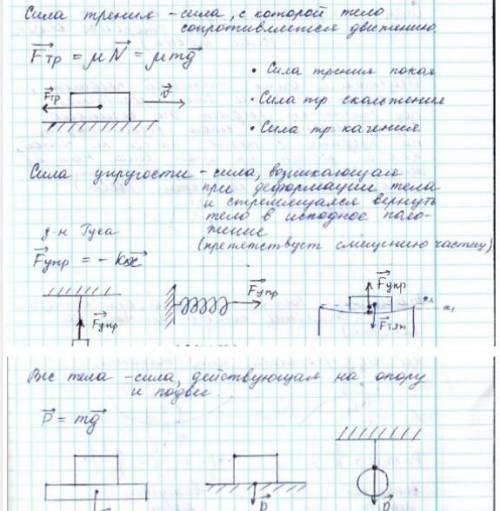 Сила трения - сила, с которой тело
сопротивляется движению
F⃗тр = μN⃗ = μmg⃗
• Сила трения покоя
F⃗тр
• Сила тр скольжения
• Сила тр качения
Сила упругости - сила, возникающая
при деформации тела
и стремящаяся вернуть
тело в исходное поло-
жение
з-н Гука
(препятствует смещению частиц)
F⃗упр = - kx⃗
F⃗упр
F⃗упр
F⃗упр
F⃗тяж
Вес тела - сила, действующая на опору
и подвес
P⃗ = mg⃗
P⃗
P⃗